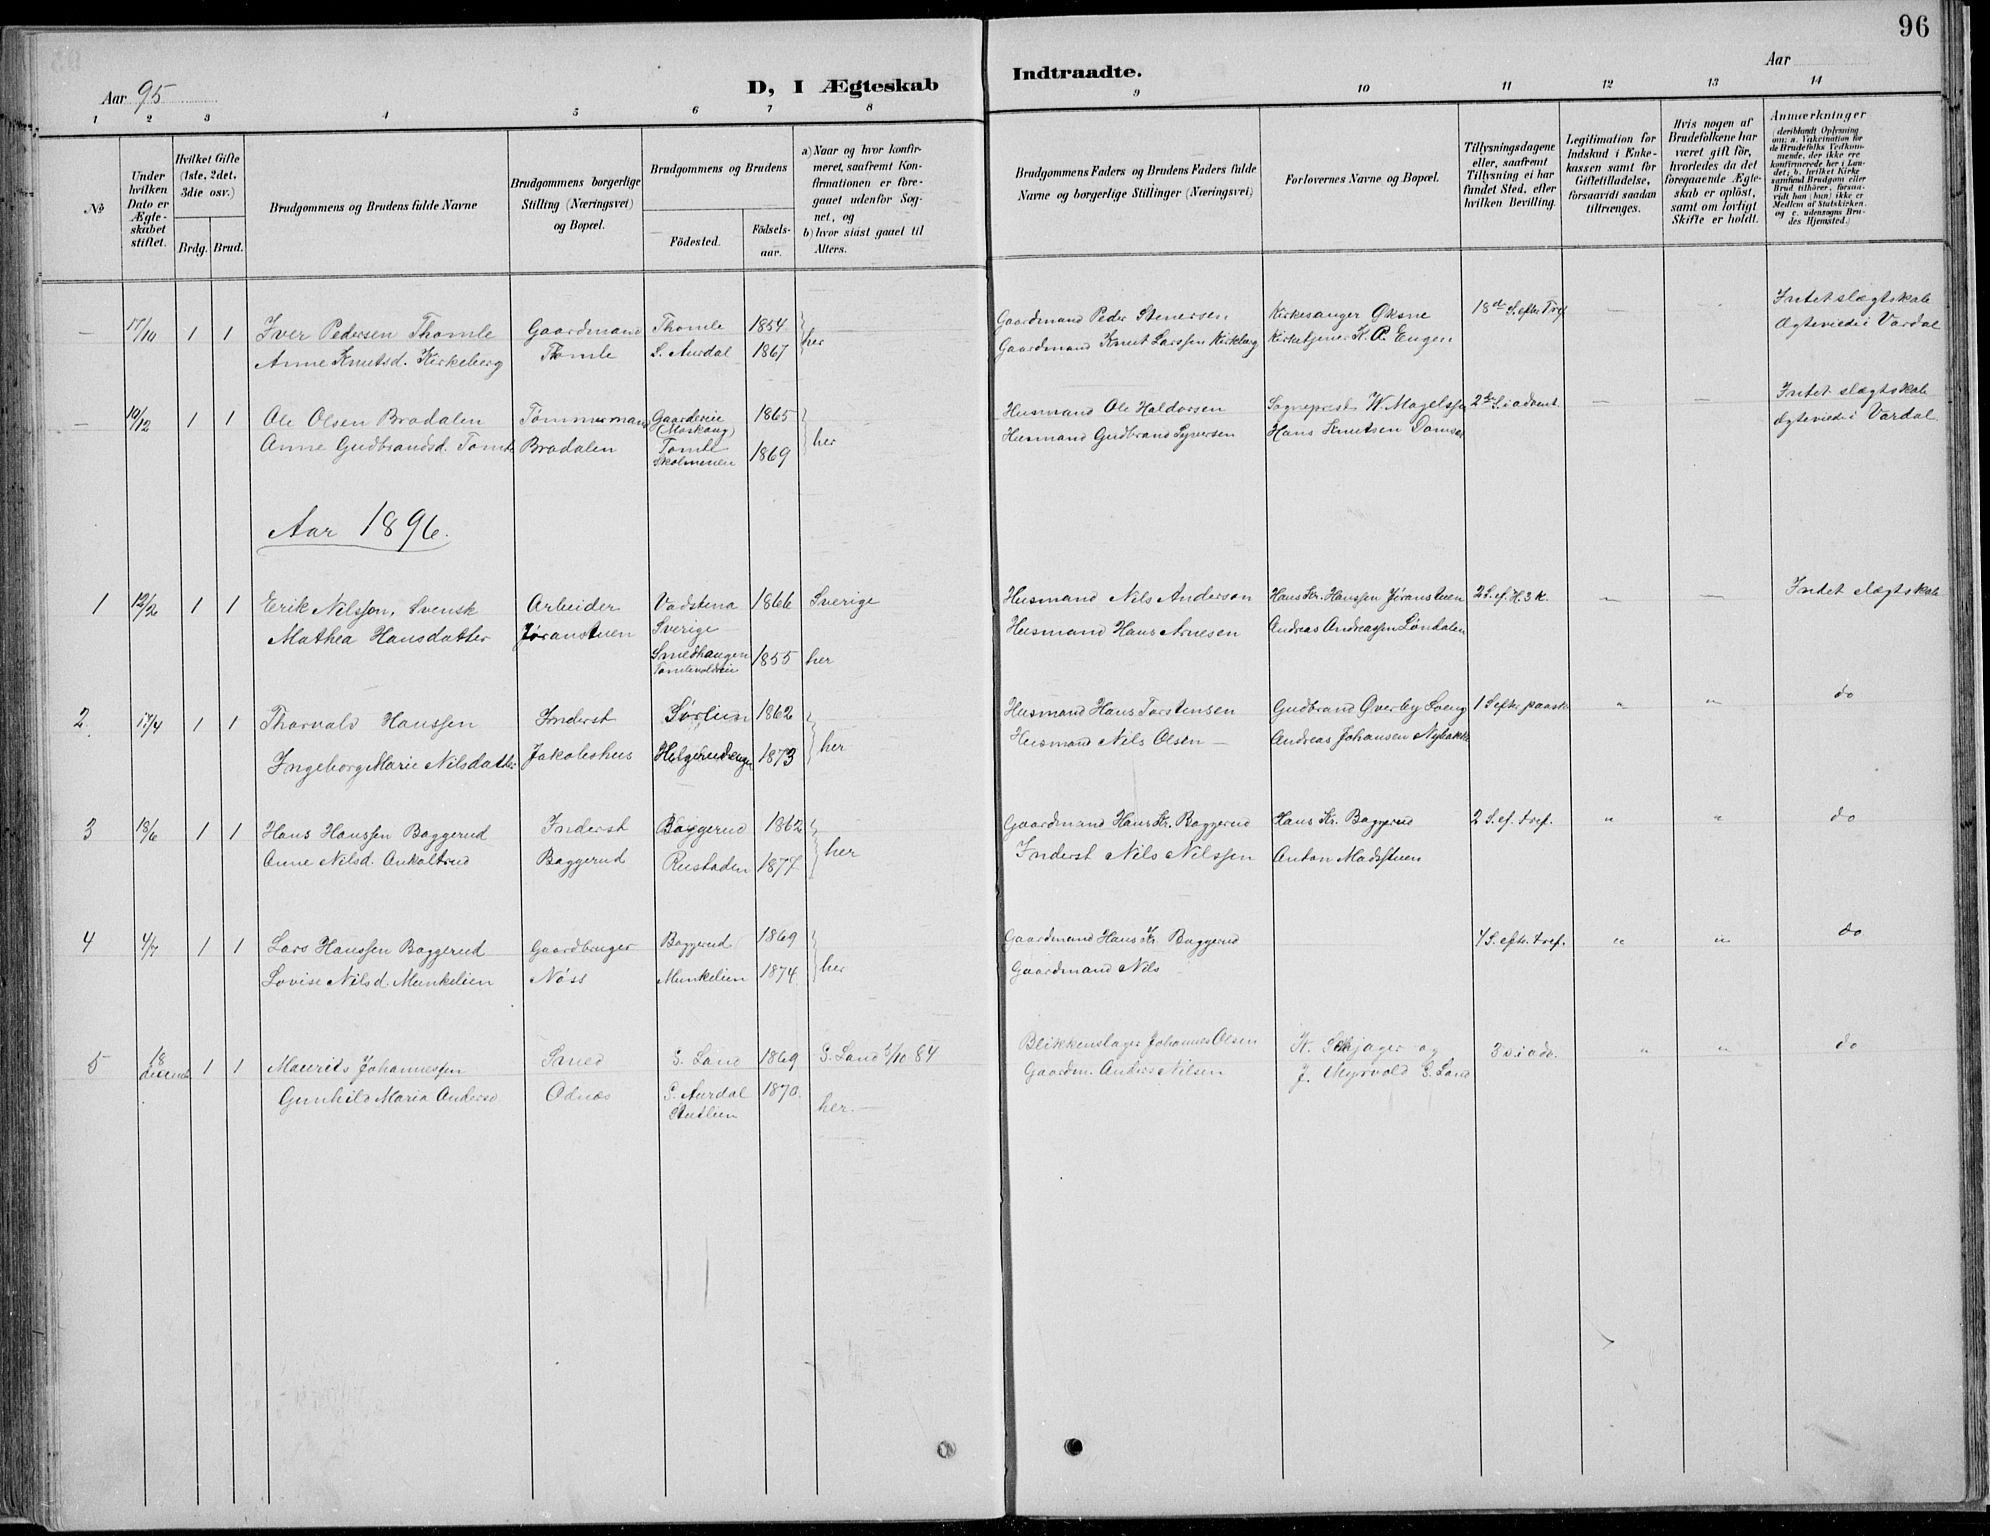 96
Aar 95
D, I Ægteskab
Indtraadte.
Aar
1 2 3 4 5 6 7 8 9 10 11 12 13 14
No
Under hvilken Dato er Ægteskabet stiftet.
Hvilket Gifte (1ste, 2det, 3die osv.)
Brdg. Brud.
Brudgommens og Brudens fulde Navne
Brudgommens borgerlige Stilling (Næringsvei) og Bopæl.
Brudgommens og Brudens
Födested.
Födsels-aar.
a) Naar og hvor konfirmeret, saafremt Konfirmationen er foregaaet udenfor Sognet, og
b) hvor sidst gaaet til Alters.
Brudgommens Faders og Brudens Faders fulde Navne og borgerlige Stillinger (Næringsvei)
Forlovernes Navne og Bopæl.
Tillysningsdagene eller, saafremt Tillysning ei har fundet Sted, efter hvilken Bevilling.
Legitimation for Indskud i Enkekassen samt for Giftetilladelse, forsaavidt saadan tiltrænges.
Hvis nogen af Brudefolkene har været gift för, hvorledes da det foregaaende Ægteskab er oplöst, samt om lovligt Skifte er holdt.
Anmærkninger (deriblandt Oplysning om: a. Vakcination for de Brudefolks Vedkommende, der ikke ere konfirmerede her i Landet; b. hvilket Kirkesamfund Brudgom eller Brud tilhörer, forsaavidt han (hun) ikke er Medlem af Statskirken, og c. udensogns Brudes Hjemsted.)
— 17/10 1 1 Iver Pedersen Thomle Gaardmand Thomle 1854 her Gaardmand Peder Stenersen Kirkesanger Øksne 18de S. efter Tref — — Intet slægtskab
Anne Knutsd. Kirkeberg Tomle S. Aurdal 1867 Gaardmand Knut Larssen Kirkeberg Kirketjener K. P. Engen Ægteviede i Vardal
— 10/12 1 1 Ole Olsen Bradalen Tømmermand Gaardereie (Moskaug) 1865 her Husmand Ole Haldorsen Sogneprest W. Magelssen 2den S. i advent. — — Intet slægtskab
Anne Gudbrandsd. Tomle Bradalen Tomle Skolmenen 1869 Husmand Gudbrand Syversen Hans Knutsen ægteviede i Vardal
Aar 1896.
1 12/2 1 1 Erik Nilssen, Svensk Arbeider Vadstena Sverige 1866 Sverige Husmand Nils Anderson Hans Kr. Hanssen Jøranstuen 2 S. ef. H. 3 K. " — Intet slægtskab
Mathea Hansdatter Jøranstuen Smedhaugen Tomlevoldeie 1855 her Husmand Hans Arnesen Andreas Andreassen Løndalen
2. 17/4 1 1 Thorvald Hanssen Inderst Sørlien 1862 her Husmand Hans Torstensen Gudbrand Øverby Sveng 1 S efter paaske " " do
Ingeborg Marie Nilsdatter Jakobshus Helgerudengen 1873 Husmand Nils Olsen — Andreas Johansen Nybakke
3 18/6 1 1 Hans Hanssen Baggerud Inderst Baggerud 1862 her Gaardmand Hans Kr. Baggerud Hans Kr. Baggerud 2 S. ef. tref. " " do
Anne Nilsd. Ankoltrud Baggerud Rustaden 1877 Inderst Nils Nilssen Anton Madsstuen
4 4/7 1 1 Lars Hanssen Baggerud Gaardbruger Baggerud 1869 her Gaardmand Hans Kr. Baggerud 4 S. eft. tref. " " do
Lovise Nilsd. Munkelien Nöss Munkelien 1874 Gaardmand Nils
5 18 decemb 1 1 Maurits Johannessen Smed S. Land 1869 S. Land 5/10 84 Blikkenslager Johannes Olsen K. Schjager og 3 s. i adv. " " do
Gunhild Maria Andersd Odnæs S. Aurdal 1870. her. — Gaardm. Anders Nilsen J. Myrvold S. Land